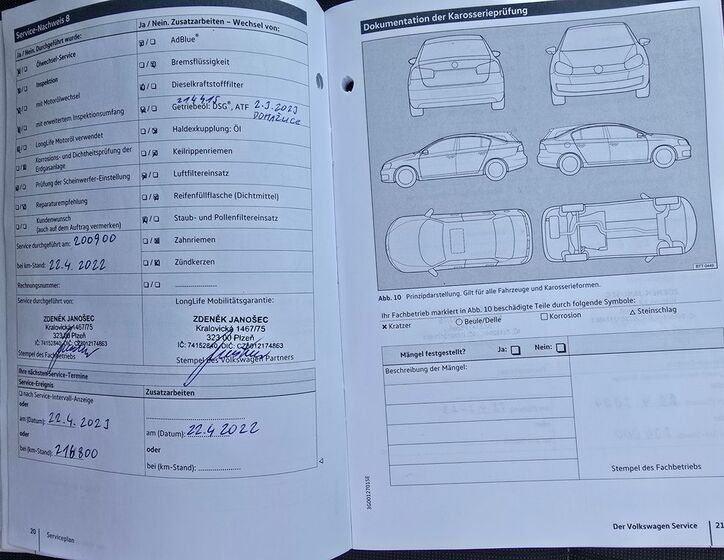 Service-Nachweis 8
Ja / Nein. Durchgeführt wurde:
Ölwechsel-Service
Inspektion
mit Motorölwechsel
mit erweitertem Inspektionsumfang
LongLife Motoröl verwendet
Korrosions- und Dichtheitsprüfung der
Erdgasanlage
Prüfung der Scheinwerfer-Einstellung
Reparaturempfehlung
Kundenwunsch
(auch auf dem Auftrag vermerken)
Service durchgeführt am: 200900
bei km-Stand: 22.4. 2022
Rechnungsnummer:
Service durchgeführt von:
ZDENĚK JANOŠEC
Kralovická 1467/75
323 00 Plzeň
IČ: 74152840, DIČ: CZ
Stempel des Fachbetriebs
Ja / Nein. Zusatzarbeiten – Wechsel von:
AdBlue®
Bremsflüssigkeit
Dieselkraftstofffilter
214415
Getriebeöl: DSG®, ATF 2.3.2023
DOMAŽLICE
Haldexkupplung: Öl
Keilrippenriemen
Luftfiltereinsatz
Reifenfüllflasche (Dichtmittel)
Staub- und Pollenfiltereinsatz
Zahnriemen
Zündkerzen
LongLife Mobilitätsgarantie:
ZDENĚK JANOŠEC
Kralovická 1467/75
323 00 Plzeň
IČ: 74152840, DIČ: CZ6012174863
Stempel des Volkswagen Partners
Ihre nächsten Service-Termine
Service-Ereignis
nach Service-Intervall-Anzeige
oder
am (Datum): 22.4. 2023
oder
bei (km-Stand): 216800
Zusatzarbeiten
am (Datum): 22.4.2022
oder
bei (km-Stand):
20 Serviceplan
Dokumentation der Karosserieprüfung
BTT-0449
Abb. 10 Prinzipdarstellung. Gilt für alle Fahrzeuge und Karosserieformen.
Ihr Fachbetrieb markiert in Abb. 10 beschädigte Teile durch folgende Symbole:
× Kratzer ○ Beule/Delle □ Korrosion △ Steinschlag
Mängel festgestellt? Ja: Nein:
Beschreibung der Mängel:
Stempel des Fachbetriebs
3G0012701SE
Der Volkswagen Service 21